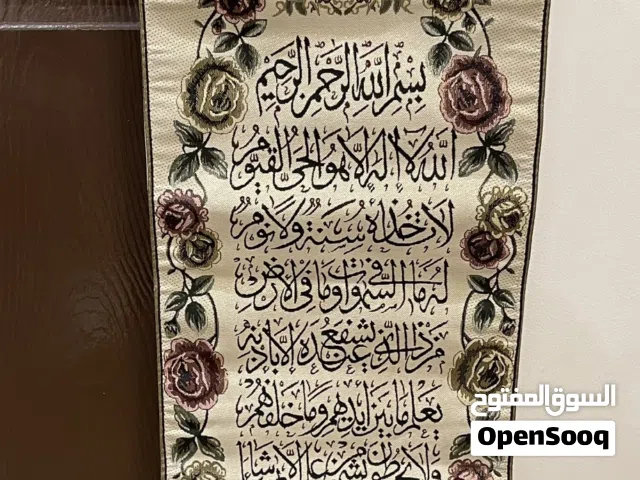 بسم الله الرحمن الرحيم
الله لا إله إلا هو الحي القيوم
لا تأخذه سنة ولا نوم
له ما في السموات وما في الأرض
من ذا الذي يشفع عنده إلا بإذنه
يعلم ما بين أيديهم وما خلفهم
ولا يحيطون بشيء من علمه إلا بما شاء
السوق المفتوح
OpenSooq